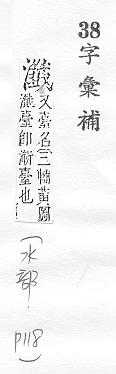 38字彙補
瀸又臺名三輔黃圖
瀸臺即漸臺也
(水部 P118)